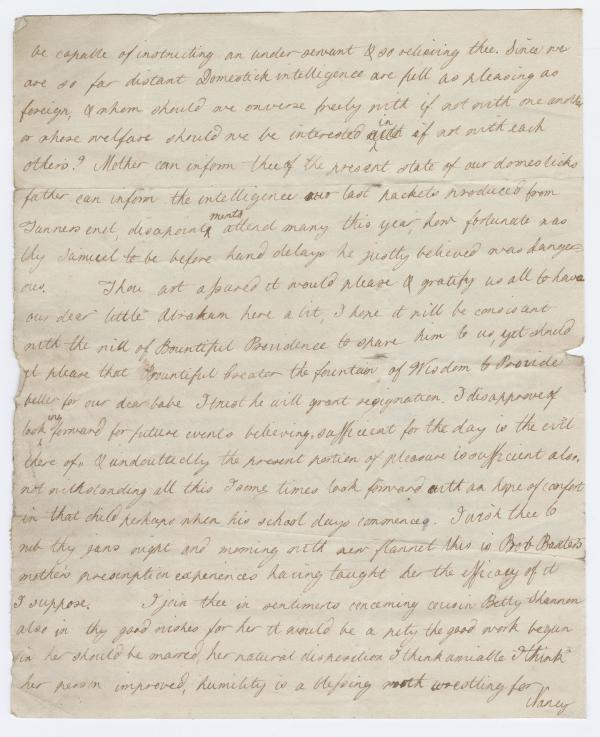 be capable of instructing an under servant & so relieving thee. Since we
are so far distant Domestick intelligence are full as pleasing as
foreign, & whom should we converse freely with if not with one another
or whose welfare should we be interested in with if not with each
others? Mother can inform thee of the present state of our domesticks
father can inform the intelligence our last packets produced from
Tanners end, disapointments attend many this year, how fortunate was
thy Samuel to be before hand delays he justly believed was danger=
ous. Thou art assured it would please & gratify us all to have
our dear little Abraham here a bit, I hope it will be consistant
with the will of Bountiful Providence to spare him to us yet should
it please that Bountiful Creater the fountain of Wisdom to Provide
better for our dear babe I trust he will grant resignation. I disapprove of
looking forward for future events believing, sufficient for the day is the evil
there of, & undoubtedly the present portion of pleasure is sufficient also,
not withstanding all this I some times look forward with an hope of comfort
in that child perhaps when his school days commence. I wish thee to
rub thy jaws night and morning with new flannel this is Bob Baxters
mothers prescription experiences having taught her the efficacy of it
I suppose. I join thee in sentiments concerning cousin Betty Shannon
also in thy good wishes for her it would be a pity the good work begun
in her should be marred, her natural disposition I think amiable I think
her person improved, humility is a blessing worth wrestling for
Nancy